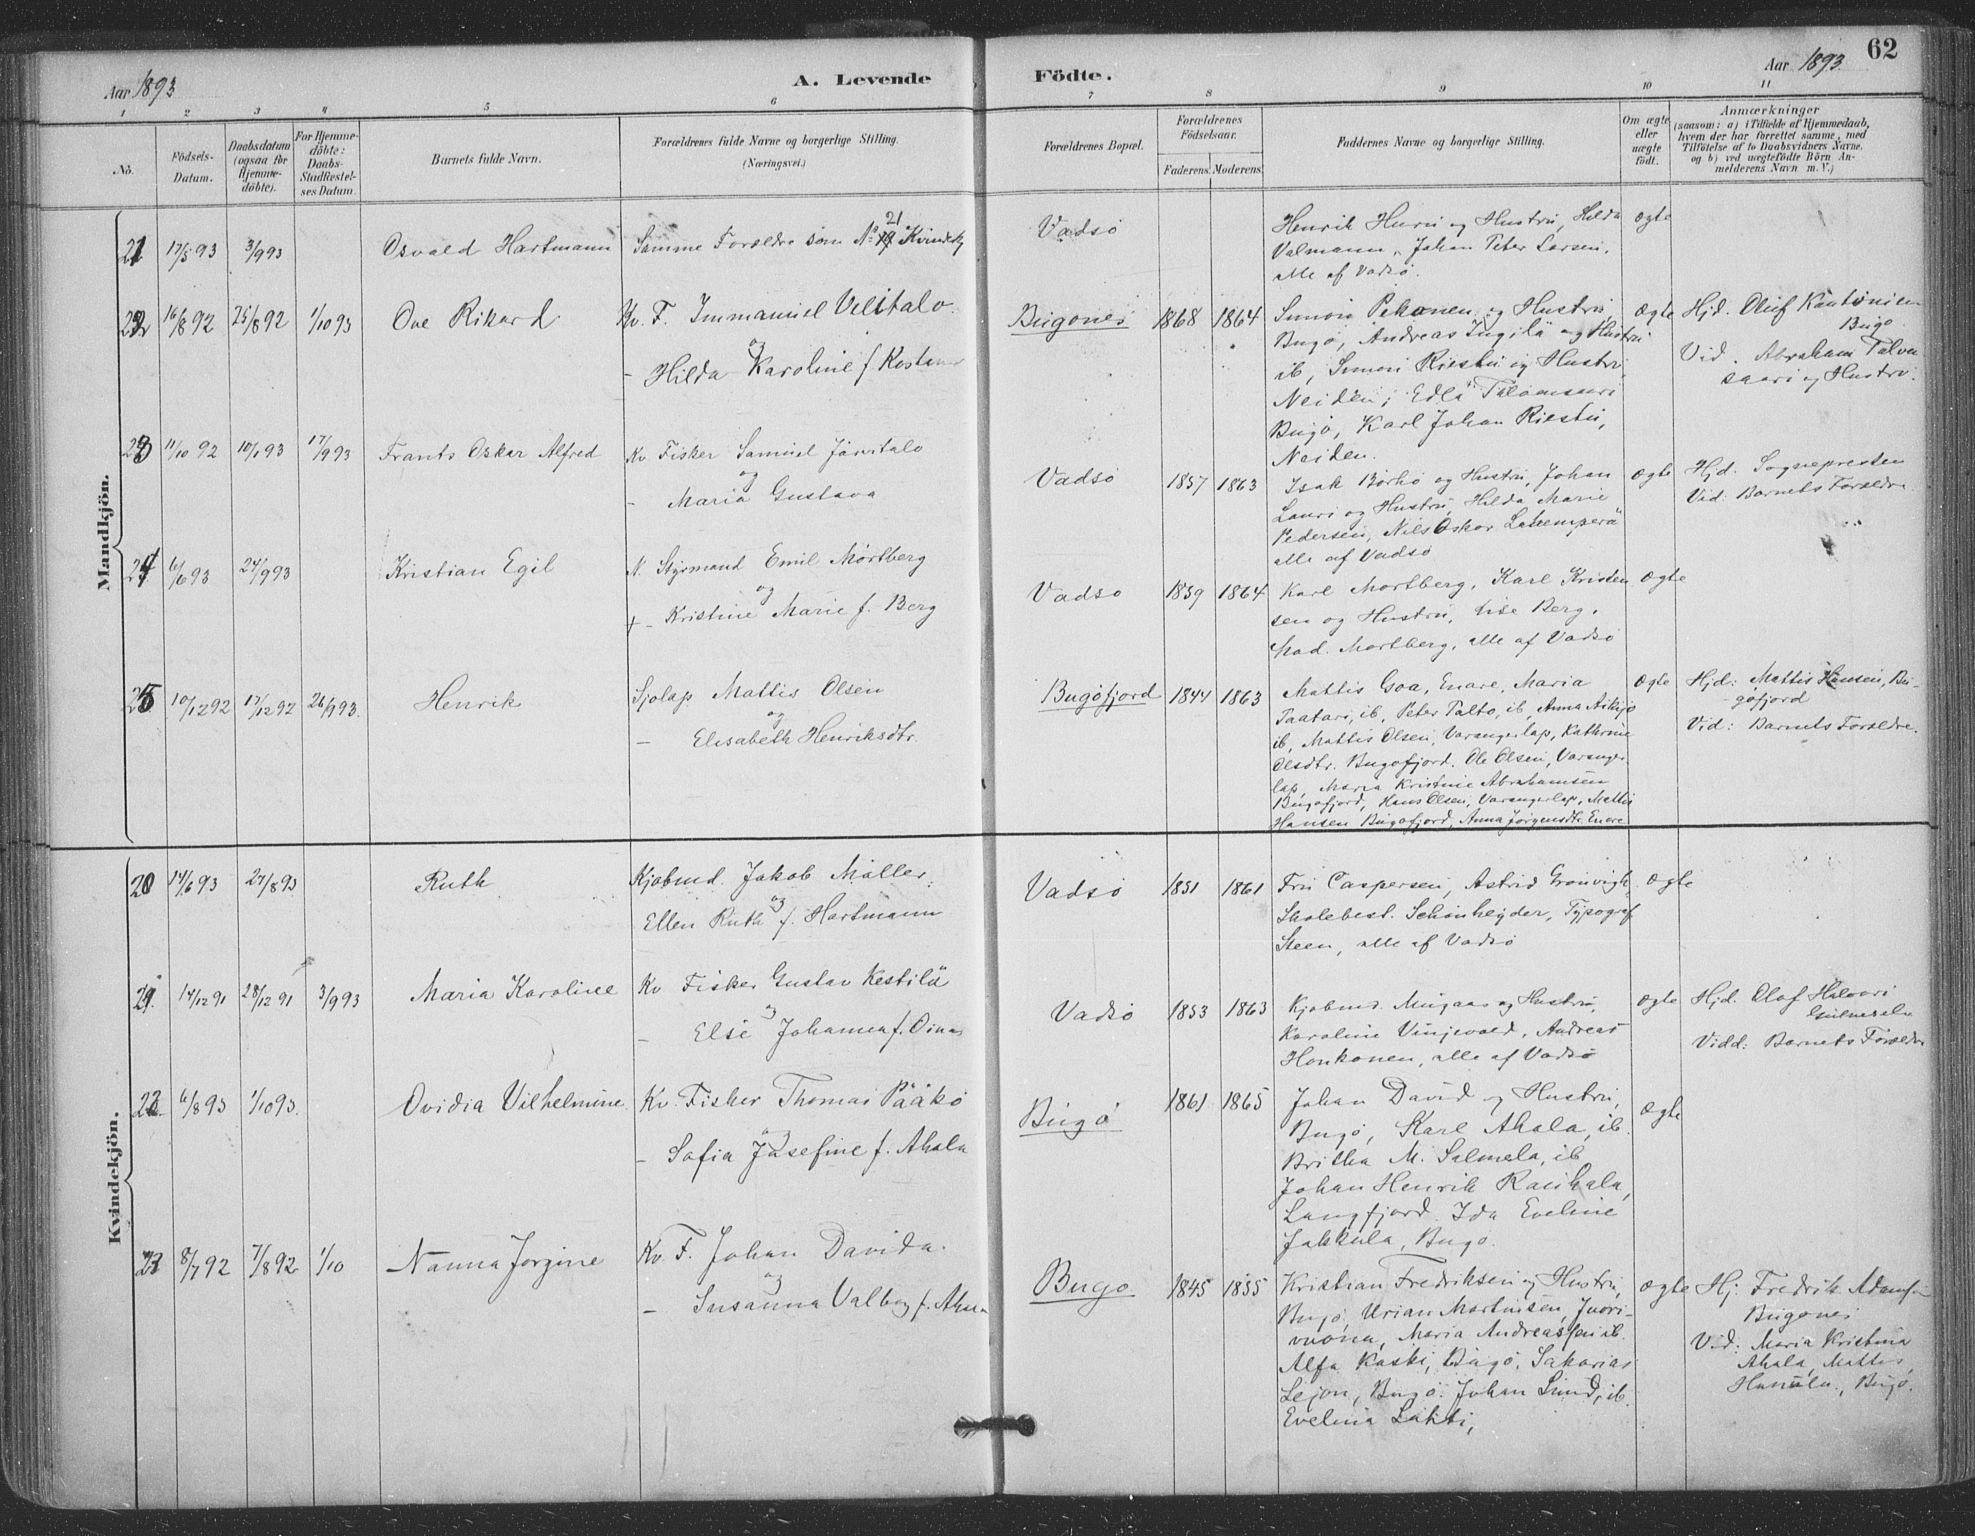 Aar 1893
A. Levende
Födte.
Aar 1893.
62
1 2 3 4 5 6 7 8 9 10 11
No.
Födsels-
Datum.
Daabsdatum
(ogsaa for
Hjemme-
döbte).
For Hjemme-
döbte:
Daabs-
Stadfæstel-
ses Datum.
Barnets fulde Navn.
Forældrenes fulde Navne og borgerlige Stilling.
(Næringsvei.)
Forældrenes Bopæl.
Forældrenes
Födselsaar.
Faderens. Moderens.
Faddernes Navne og borgerlige Stilling.
Om ægte
eller
uægte
födt.
Anmærkninger
(saasom: a) i Tilfælde af Hjemmedaab,
hvem der har forrettet samme, med
Tilföielse af to Daabsvidners Navne,
og b) ved uægtefödte Börn An-
melderens Navn m. V.)
Mandkjön.
21 17/5 93 3/9 93 Osvald Hartmann Samme Forældre som No 21 Kvindekj Vadsö
Henrik Huru og Hustru, Hilda
Valmann, Johan Peter Larsen,
alle af Vadsö.
ægte
22 16/8 92 25/8 92 1/10 93 Ove Rikard Kv. F. Immanuel Velitalo
og
- Hilda Karoline f. Kostamo
Bugönes 1868 1864
Simon Pekonen og Hustru,
Bugö, Andreas Ingilä og Hustru
ib, Simon Riesti og Hustru,
Neiden, Edla
Bugö, Karl Johan Riesti,
Neiden.
ægte
Hjd. Oluf Kantonien
Bugö
Vid. Abraham Talven
saari og Hustru.
23 11/10 92 10/1 93 17/9 93 Frants Oskar Alfred Kv Fisker Samuel Järvitalo
og
- Maria Gustava
Vadsö 1857 1863
Isak Börhö og Hustru, Johan
Lauri og Hustru, Hilda Marie
Pedersen, Nils Oskar
alle af Vadsö
ægte
Hjd. Sognepresten
Vid: Barnets Forældre
24 6/6 93 24/9 93 Kristian Egil N. Styrmand Emil Mörtberg
og
+ - Kristine Marie f. Berg
Vadsö 1859 1864
Karl Mortberg, Karl Kristen
sen og Hustru, Lise Berg,
Mad. Mortberg, alle af Vadsö
ægte
25 10/12 92 17/12 92 26/9 93. Henrik Sjölap Mattis Olsen
og
- Elisabeth Henriksdtr.
Bugöfjord 1844 1863
Mattis Goa, Enare, Maria
Paatari, ib, Peter Palto, ib, Anna Aikijo
ib, Mattis Olsen, Varangerlap, Kathrine
Olsdtr. Bugöfjord. Ole Olsen, Varanger
lap, Maria Kristine Abrahamsen
Bugöfjord, Hans Olsen, Varangerlap, Mattis
Hansen Bugöfjord, Anna Jörgensdtr. Enare
ægte
Hjd: Mattis Hansen, Bu-
göfjord
Vid: Barnets Forældre.
Kvindekjön.
20 14/6 93 27/8 93 Ruth Kjöbmd. Jakob Möller,
og
Ellen Ruth f. Hartmann
Vadsö 1851 1861
Fru Caspersen, Astrid Grönvigh,
Skolebest. Schönheyder, Typograf
Steen, alle af Vadsö
ægte
21. 14/12 91 28/12 91 3/9 93 Maria Karoline Kv Fisker Gustav Kestilä
og
- Else Johanna f. Oinas
Vadsö 1853 1863
Kjöbmd. Mugaas og Hustru,
Karoline Vinjevold, Andreas
Honkonen, alle af Vadsö
ægte
Hjd. Olaf Halvari
Vidd: Barnets Forældre
22. 6/8 93 1/10 93. Ovidia Vilhelmine Kv. Fisker Thomas Pääkö
og
- Sofia Josefine f. Ahola
Bugö 1861 1865
Johan David og Hustru,
Bugö, Karl Ahala, ib.
Britha M. Salmela, ib
Johan Henrik Rauhala,
Langfjord. Ida Eveline
Jakkula, Bugö.
ægte
23 8/7 92 7/8 92 1/10 Nanna Jorgine Kv. F. Johan Davida.
og
- Susanna Valborg f.
Bugö 1845 1855
Kristian Fredriksen og Hustru,
Bugö, Urian Martinsen,
vuona, Maria Andreassen ib.
Alfa Koski, Bugö. Sakarias
Lejon, Bugö. Johan Lund, ib.
Evelina Lahti,
ægte
Hj. Fredrik Adamsen
Bugönes
Vid: Maria Kristina
Ahala, Mattis
Hannula, Bugö.